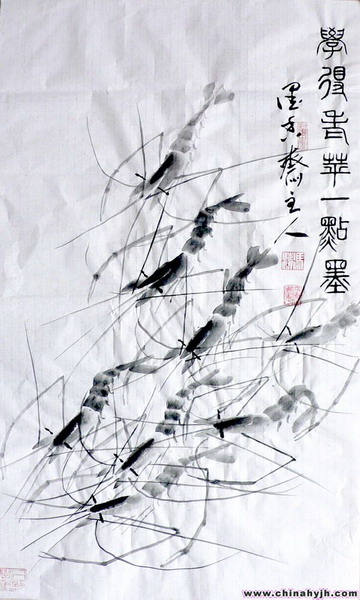 學得老苹一點墨
墨香齋主人
www.chinahyjh.com